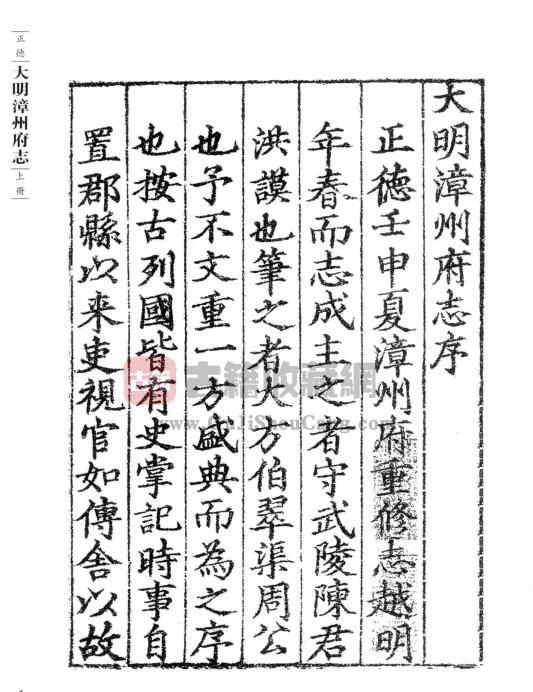 大明漳州府志序
正德壬申夏漳州府重修志越明
年春而志成主之者守武陵陳君
洪謨也筆之者大方伯翠渠周公
也予不文重一方盛典而為之序
也按古列國皆有史掌記時事自
置郡縣以来吏視官如傳舍以故
正德
大明漳州府志
上冊
古籍收藏網
www.GuJiShouCang.com